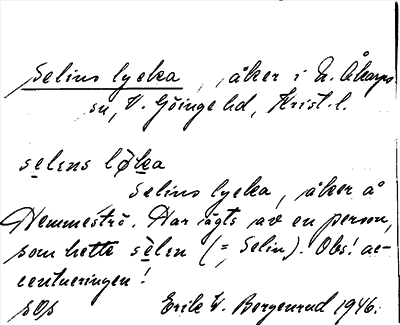 Selins lycka, åker i N. Åkarps
sn, V. Göinge hd, Krist. l.
selıns lø̄ka
Selins lycka, åker å
Hemmeströ. Har ägts av en person,
som hette sèlın (=, Selin). Obs! ac-
centueringen!
Erik W. Bergenrud 1946.